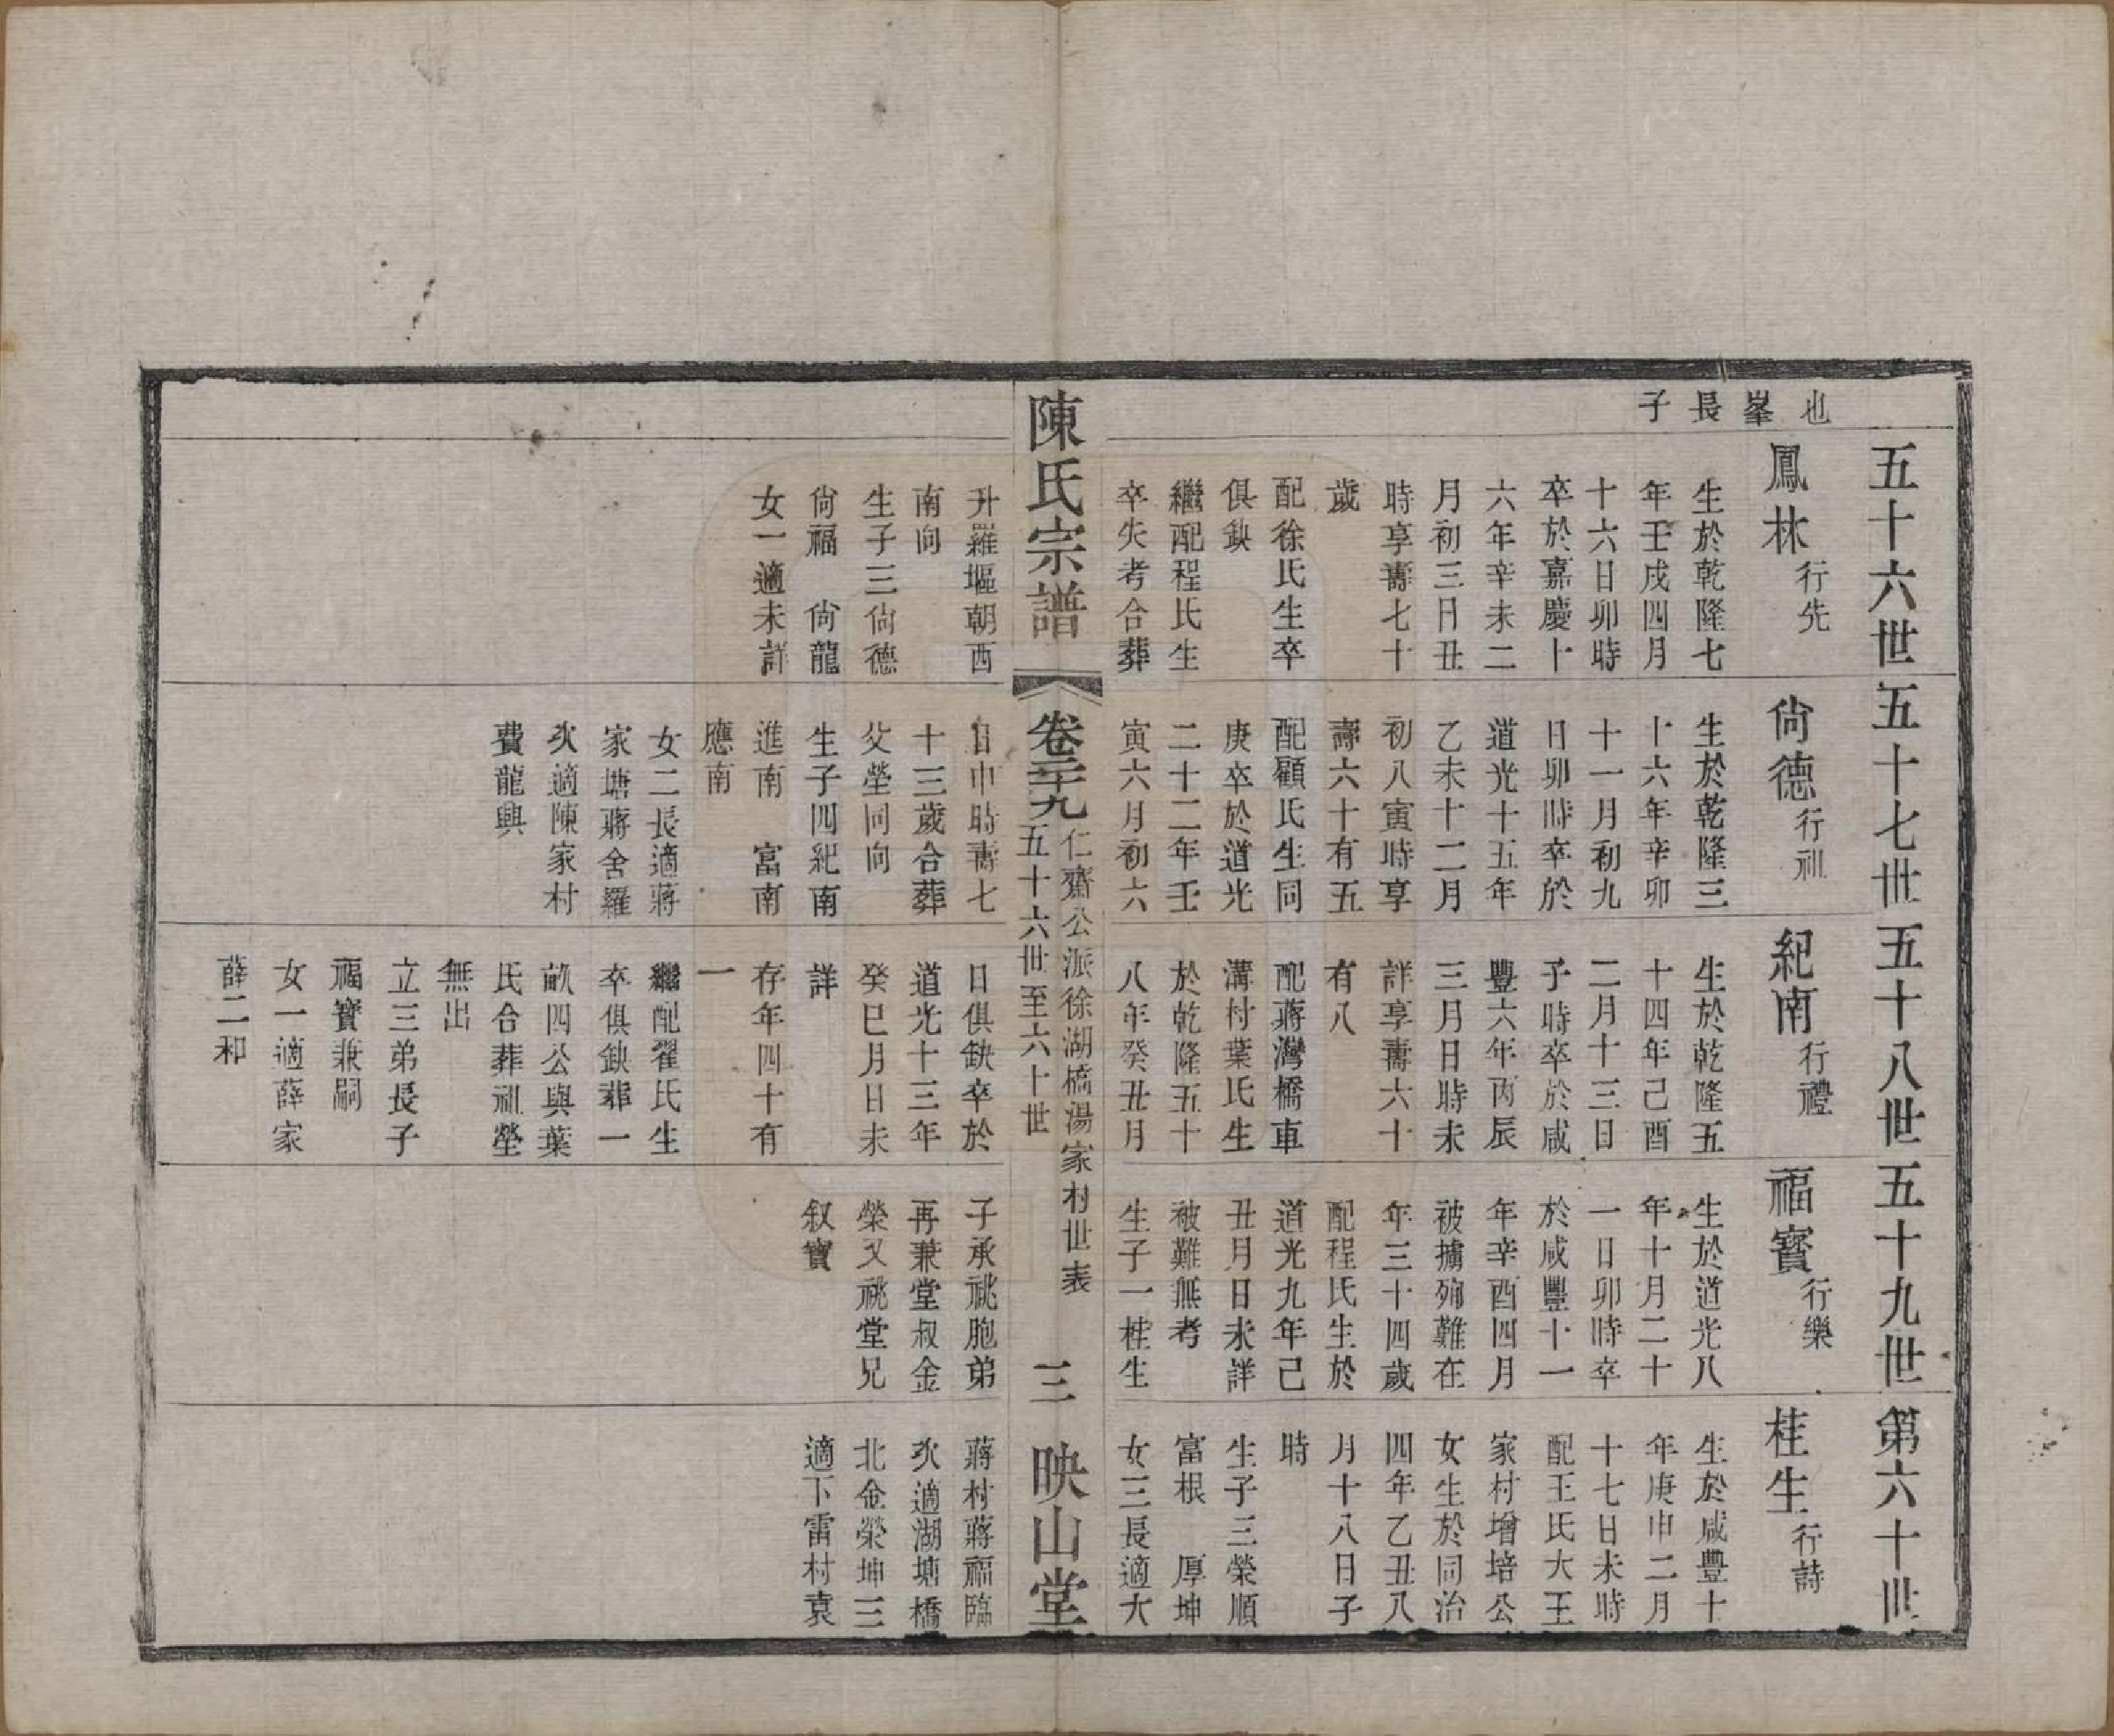 也
峯
長
子
五十六世
鳳林行先
生於乾隆七
年壬戌四月
十六日卯時
卒於嘉慶十
六年辛未二
月初三日丑
時享壽七十
歲
配徐氏生卒
俱缺
繼配程氏生
卒失考合葬
升羅塸朝西
南向
生子三尙德
尙福　尙龍
女一適未詳
五十七世
尙德行祖
生於乾隆三
十六年辛卯
十一月初九
日卯時卒於
道光十五年
乙未十二月
初八寅時享
壽六十有五
配顧氏生同
庚卒於道光
二十二年壬
寅六月初六
日申時壽七
十三歲合葬
父塋同向
生子四紀南
進南　富南
應南
女二長適蔣
家塘蔣舍羅
次適陳家村
費龍興
五十八世
紀南行禮
生於乾隆五
十四年己酉
二月十三日
子時卒於咸
豐六年丙辰
三月日時未
詳享壽六十
有八
配蔣灣橋車
溝村葉氏生
於乾隆五十
八年癸丑月
日俱缺卒於
道光十三年
癸巳月日未
詳
存年四十有
一
繼配翟氏生
卒俱缺葬一
畝四公與葉
氏合葬祖塋
無出
立三弟長子
福寶兼嗣
女一適薛家
薛二和
五十九世
福寶行樂
生於道光八
年十月二十
一日卯時卒
於咸豐十一
年辛酉四月
被擄殉難在
年三十四歲
配程氏生於
道光九年己
丑月日未詳
被難無考
生子一桂生
子承祧胞弟
再兼堂叔金
榮又祧堂兄
叙寶
第六十世
桂生行詩
生於咸豐十
年庚申二月
十七日未時
配王氏大王
家村增培公
女生於同治
四年乙丑八
月十八日子
時
生子三榮順
富根　厚坤
女三長適大
蔣村蔣福臨
次適湖塘橋
北金榮坤三
適下雷村袁
陳氏宗譜
卷二十九
仁齋公派徐湖橋湯家村世表
五十六世至六十世
三
映山堂